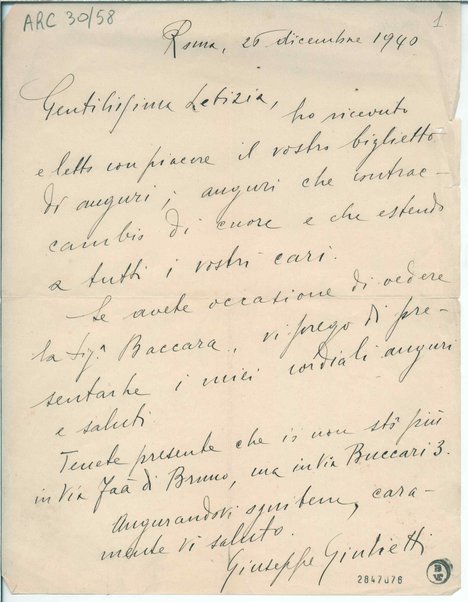 ARC 30/58
1
Roma, 26 dicembre 1940
Gentilissima Letizia,
ho ricevuto
e letto con piacere il vostro biglietto
di auguri; auguri che contrac-
cambio di cuore e che estendo
a tutti i vostri cari.
Se avete occasione di vedere
la Sig.ª Baccara, vi prego di pre-
sentarle i miei cordiali auguri
e saluti
Tenete presente che io non stò più
in Via di Bruno, ma in Via Buccari 3.
Augurandovi ogni bene, cara-
mente vi saluto.
Giuseppe Giulietti
2847076